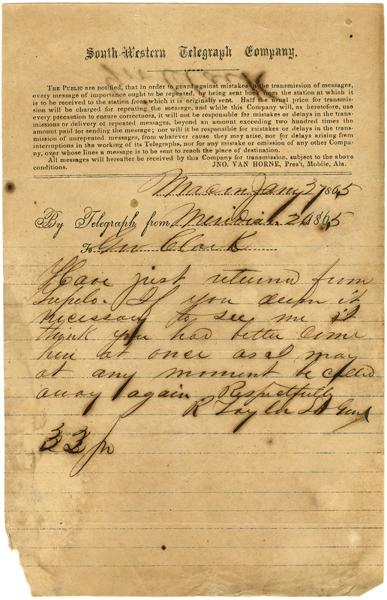 South-Western Telegraph Company.
THE PUBLIC are notified, that in order to guard against mistakes in the transmission of messages,
every message of importance ought to be repeated, by being sent back from the station at which it
is to be received to the station from which it is originally sent. Half the usual price for transmis-
sion will be charged for repeating the message, and while this Company will, as heretofore, use
every precaution to ensure correctness, it will not be responsible for mistakes or delays in the trans-
missions or delivery of repeated messages, beyond an amount exceeding two hundred times the
amount paid for sending the message; nor will it be responsible for mistakes or delays in the trans-
mission of unrepeated messages, from whatever cause they may arise, nor for delays arising from
interruptions in the working of its Telegraphs, nor for any mistake or omission of any other Compa-
ny, over whose lines a message is to be sent to reach the place of destination.
All messages will hereafter be received by this Company for transmission, subject to the above
conditions.
JNO. VAN HORNE, Pres't, Mobile, Ala.
Macon Jany 27 1865
By Telegraph from Meridian 26 1865
To Gov Clark
Have just returned from
Tupelo. If you deem it
necessary to see me I
think you had better come
here at once as I may
at any moment be called
away again Respectfully
R Taylor Lt Genl
32